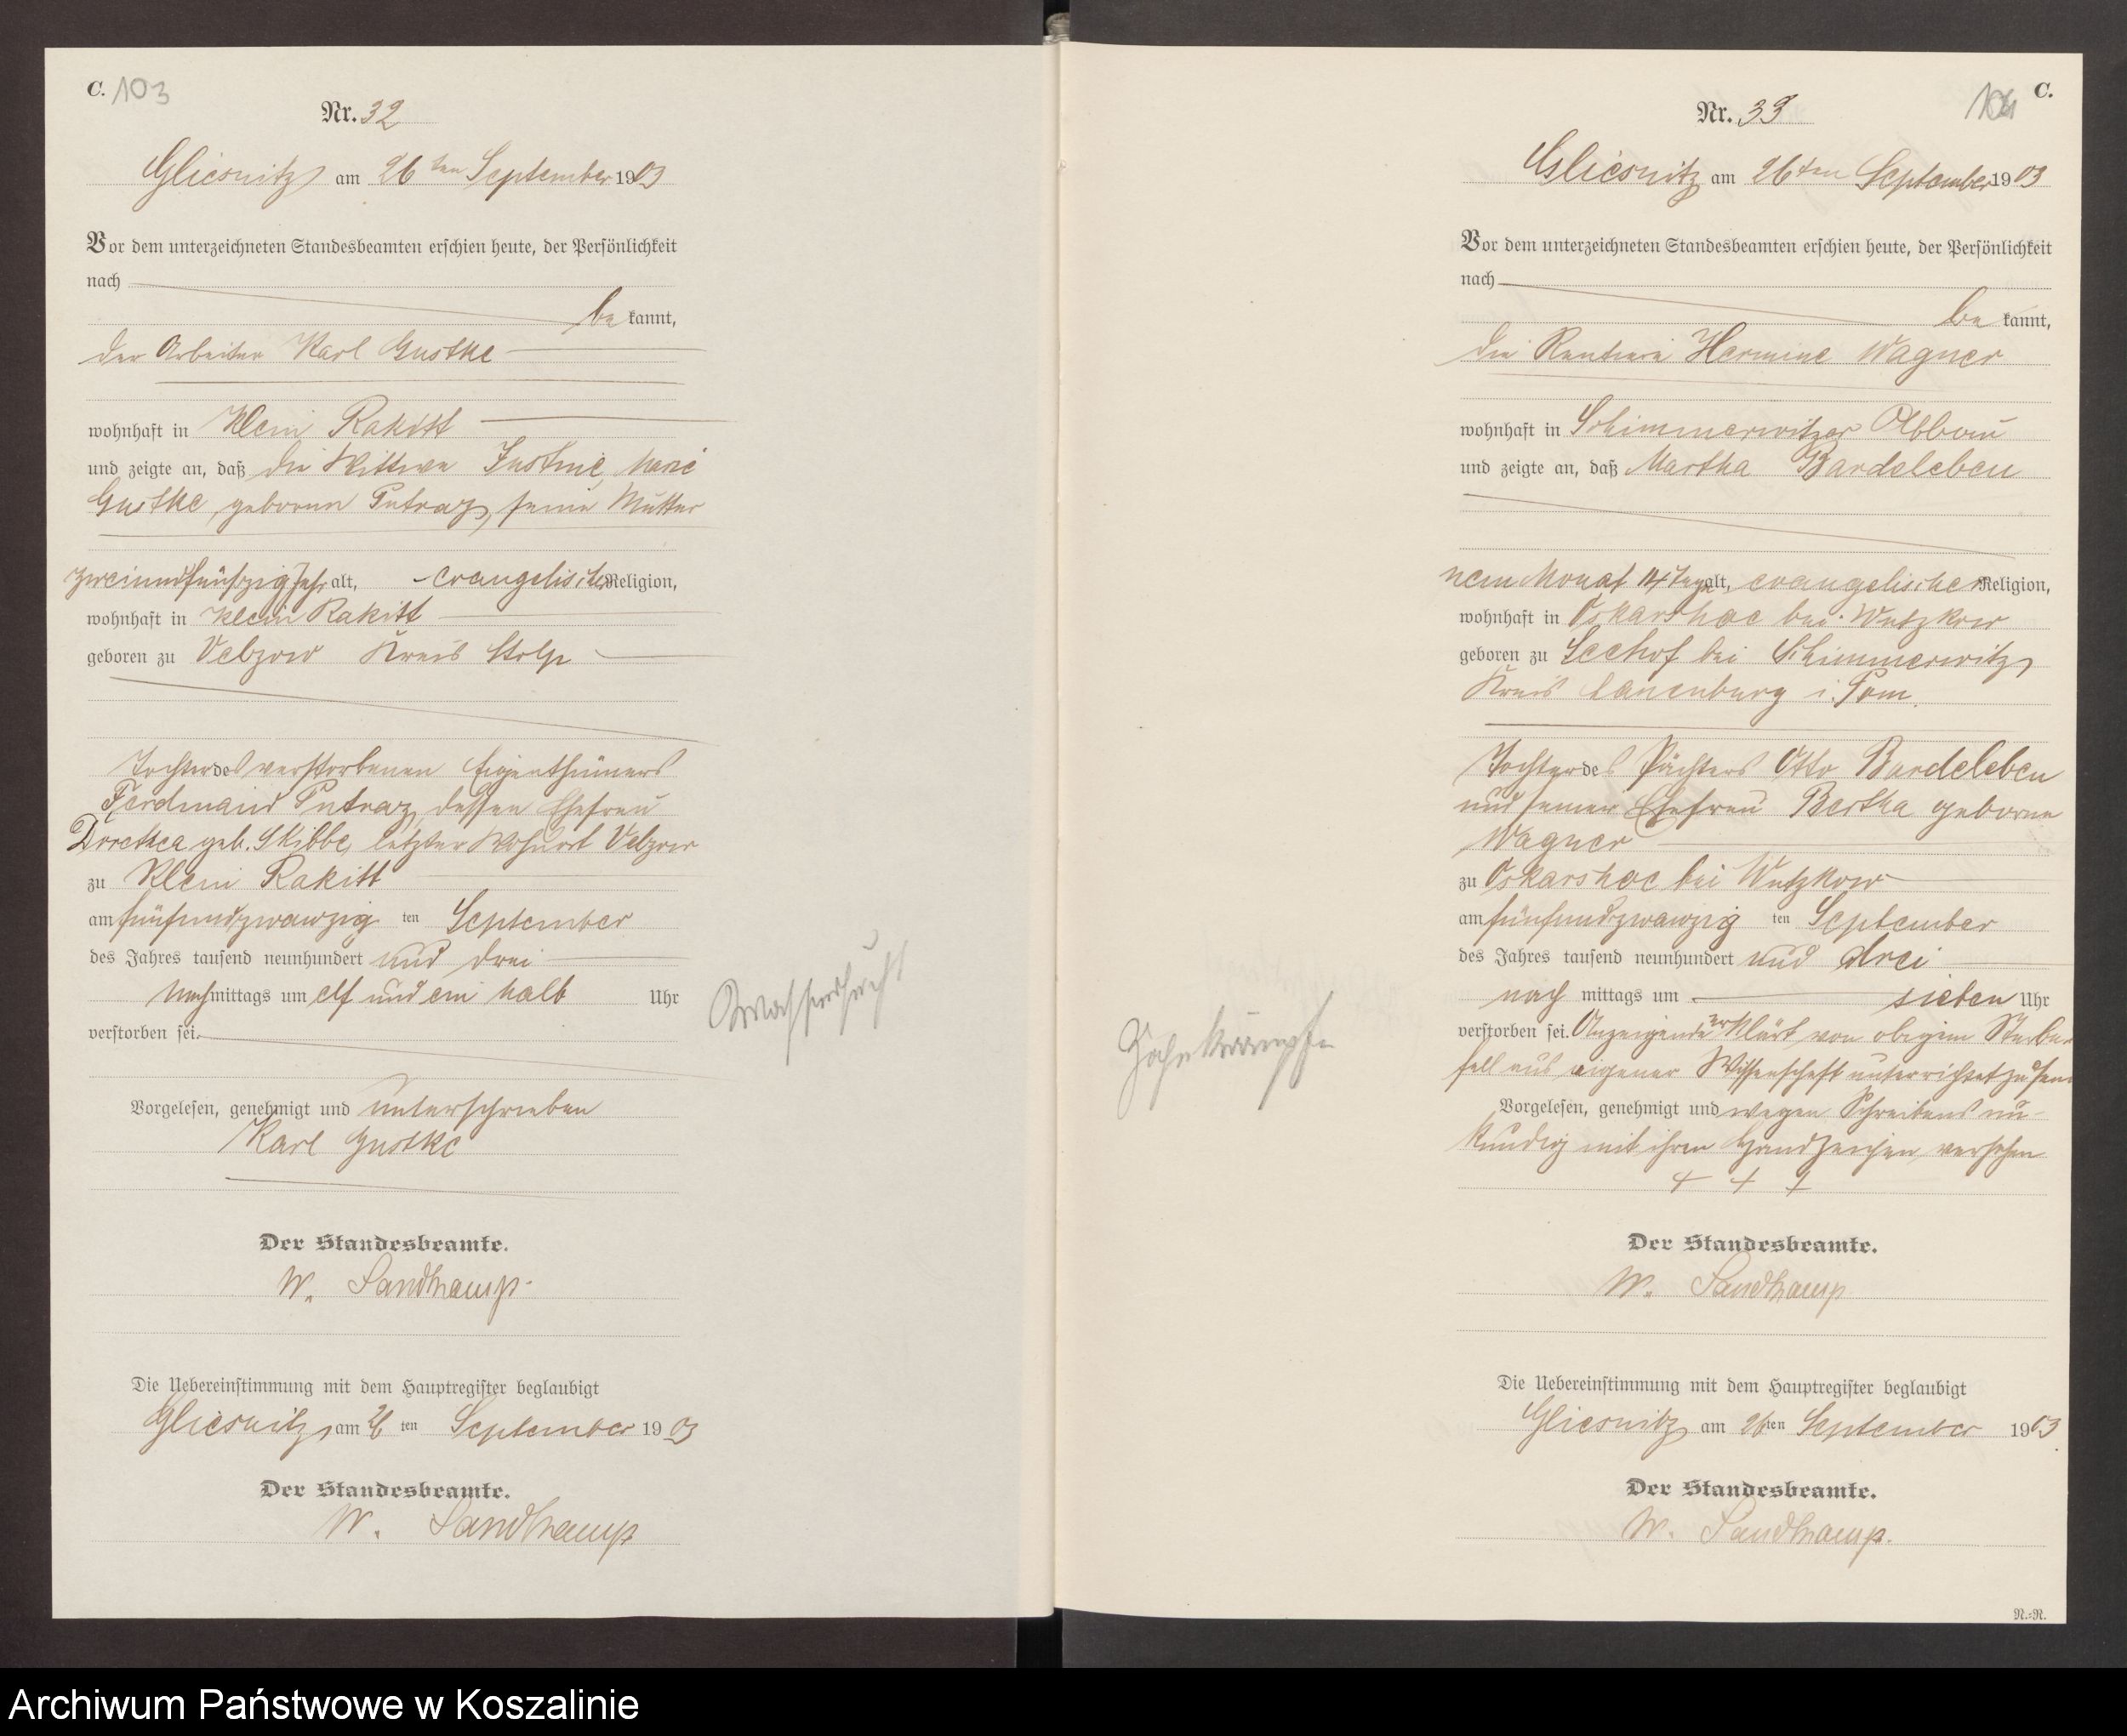 C. 103
Nr. 32
Gliesnitz am 26 ten September 1903
Vor dem unterzeichneten Standesbeamten erschien heute, der Persönlichkeit
nach
be kannt,
der Arbeiter Karl Gustke
wohnhaft in Klein Rakitt
und zeigte an, daß die Wittwe Justine, Marie
Gustke, geborene Putraz, seine Mutter
zweiundfünfzig Jahr alt, evangelischer Religion,
wohnhaft in Klein Rakitt
geboren zu Velzow Kreis Stolp
Tochter des verstorbenen Eigenthümers
Ferdinand Putraz, dessen Ehefrau
Dorethea geb. Skibbe, letzter Wohnort Velzow
zu Klein Rakitt
am fünfundzwanzig ten September
des Jahres tausend neunhundert und drei
Nachmittags um elf und ein halb Uhr
verstorben sei.
Vorgelesen, genehmigt und unterschrieben
Karl Gustke
Der Standesbeamte.
W. Sandkamp.
Die Uebereinstimmung mit dem Hauptregister beglaubigt
Gliesnitz, am 26 ten September 1903
Der Standesbeamte.
W. Sandkamp
Wassersucht
104 C.
Nr. 33
Gliesnitz am 26ten September 1903
Vor dem unterzeichneten Standesbeamten erschien heute, der Persönlichkeit
nach
be kannt,
die Rentiere Hermine Wagner
wohnhaft in Schimmerwitzer Abbau
und zeigte an, daß Martha Bardeleben
Monat 14 Tage alt, evangelischer Religion,
wohnhaft in Oskarshoe bei Wutzkow
geboren zu Seehof bei Schimmerwitz,
Kreis Lauenburg i. Pom.
Tochter des Pächters Otto Bardeleben
und seiner Ehefrau Bertha geborne
Wagner
zu Oskarshoe bei Wutzkow
am fünfundzwanzig ten September
des Jahres tausend neunhundert und drei
nach mittags um sieben Uhr
verstorben sei. Anzeigende erklärt, von obigem Sterbe-
fall aus eigener Wissenschaft unterrichtet zu sein
Vorgelesen, genehmigt und wegen Schreibens un-
kundig mit ihren Handzeichen versehen
+ + +
Der Standesbeamte.
W. Sandkamp
Die Uebereinstimmung mit dem Hauptregister beglaubigt
Gliesnitz am 26ten September 1903.
Der Standesbeamte.
W. Sandkamp.
Zahnkrämpfe
N.-N.
Archiwum Państwowe w Koszalinie